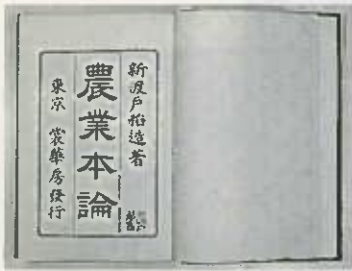 新渡戸稲造著
農業本論
東京 裳華房發行